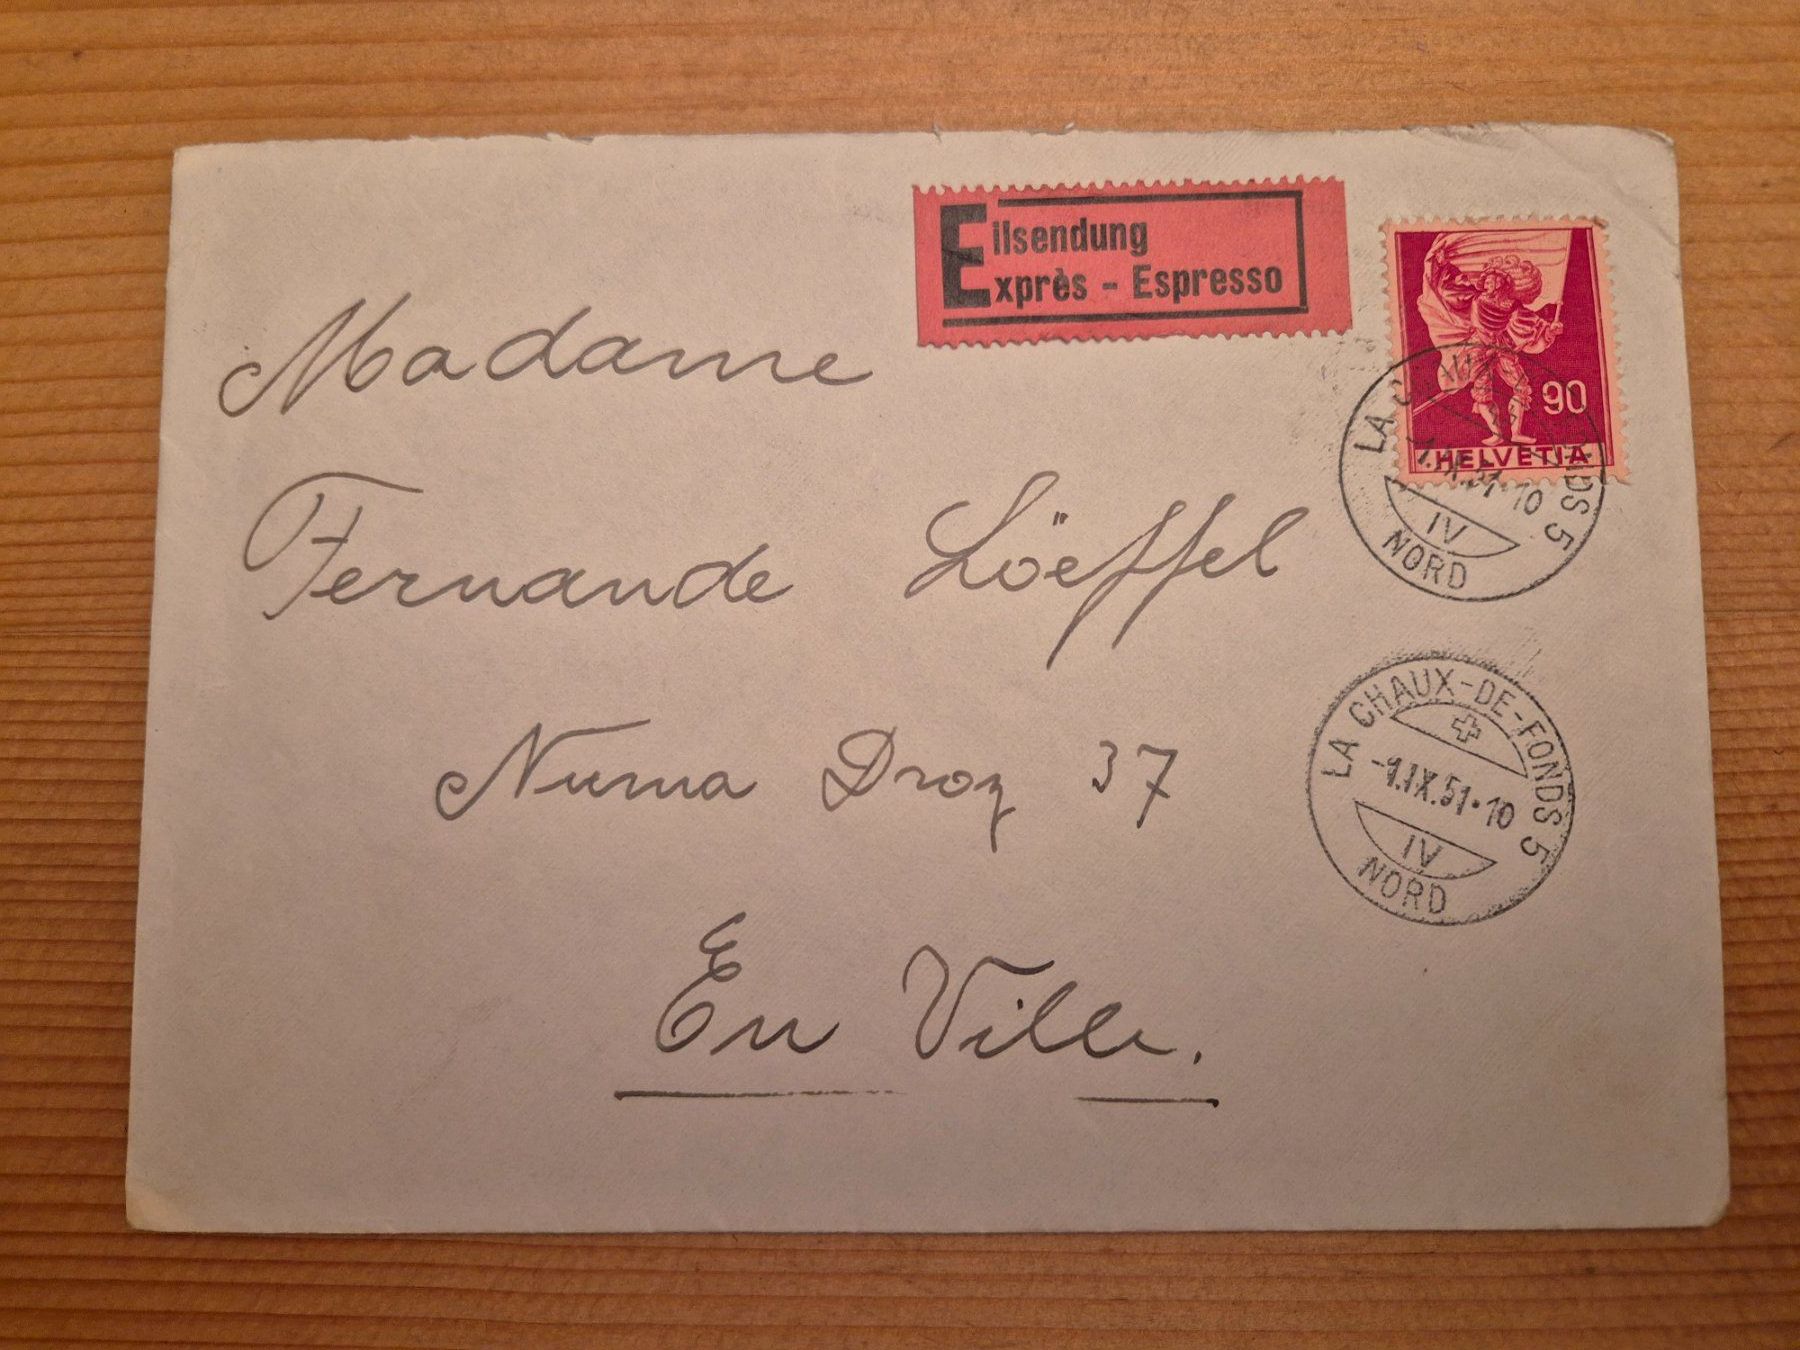 Eilsendung
Exprès - Espresso
90
HELVETIA
LA CHAUX-DE-FONDS 5
1.IX.51·10
IV
NORD
Madame
Fernande Löeffel
Numa Droz 37
En Ville.
LA CHAUX-DE-FONDS 5
-1.IX.51·10
IV
NORD